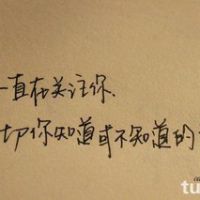 一直在关注你.
切你知道或不知道的
tu